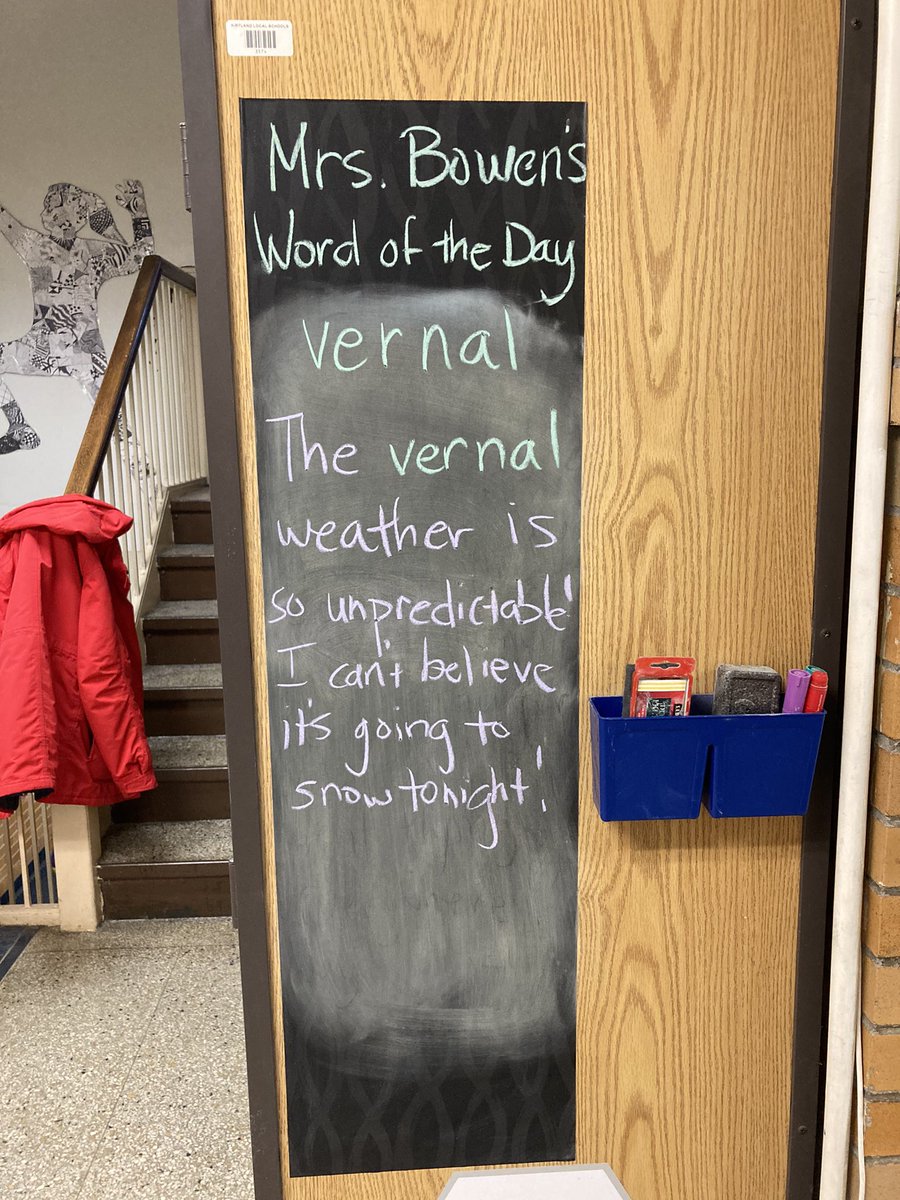 KIRTLAND LOCAL SCHOOLS
Mrs. Bowen's
Word of the Day
vernal
The vernal
weather is
so unpredictable!
I can't believe
it's going to
snow tonight!